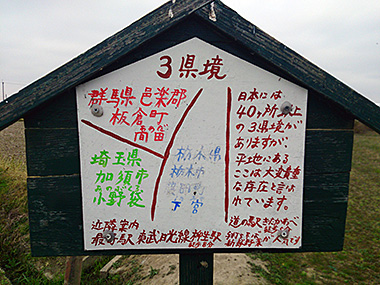 3県境
群馬県 邑楽郡
板倉町
埼玉県
加須市
小野袋
栃木県
栃木市
下宮
日本には
40ヶ所以上
の3県境が
ありますが、
平地にある
ここは大変貴重
な座圧と言わ
れています。
近隣案内
最寄駅 東武日光線柳生駅
道の駅きたかわべ